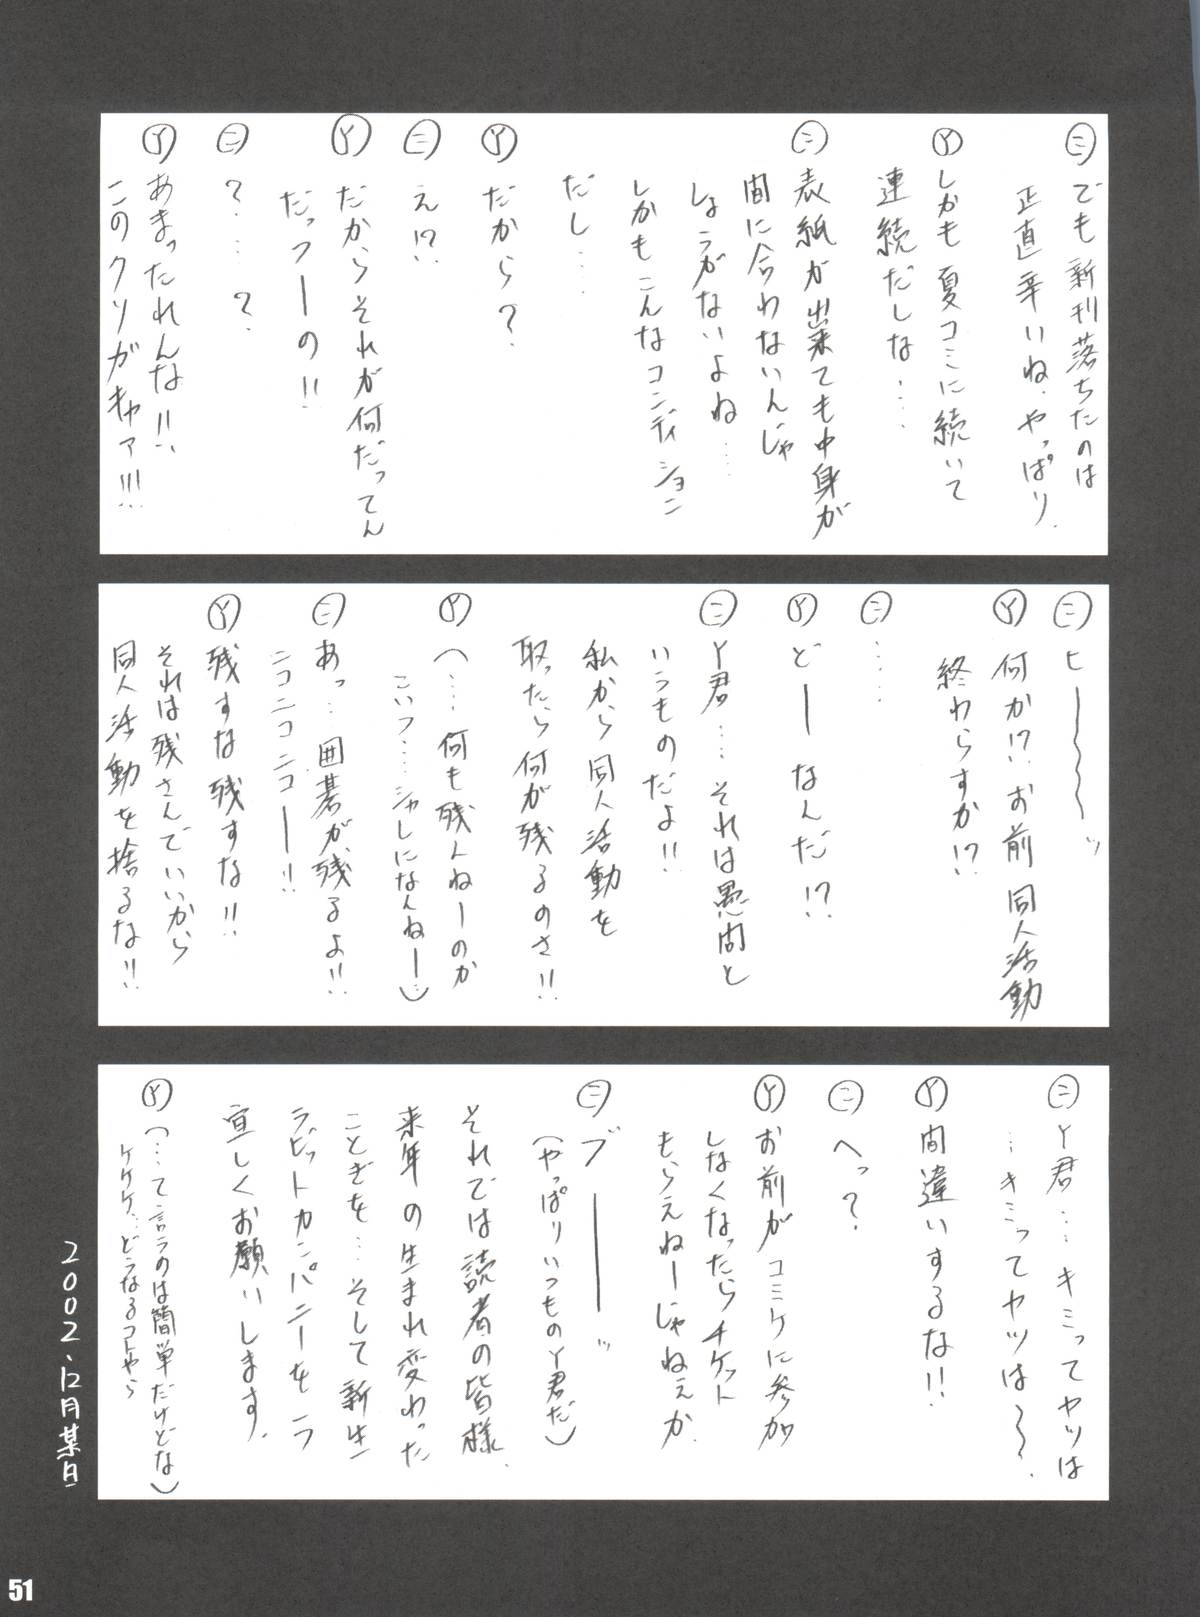 ㊁でも新刊落ちたのは
正直辛いね、やっぱり、
Ⓨしかも夏コミに続いて
連続だしな‥‥
㊁表紙が出来ても中身が
間に合わないんじゃ
しょうがないよね‥‥
しかもこんなコンディション
だし‥‥
Ⓨだから?
㊁え!?
Ⓨだからそれが何だってん
だっつーの!!
㊁?‥‥?
Ⓨあまったれんな!!
このクソガキャァ!!!
㊁ヒ〜〜〜ッ
Ⓨ何か!?お前同人活動
終わらすか!?
㊁‥‥
Ⓨどーなんだ!?
㊁Y君‥‥それは愚問と
いうものだよ!!
私から同人活動を
取ったら何が残るのさ!!
Ⓨ(‥‥何も残んねーのか
こいつ‥‥シャレになんねー‥)
㊁あっ‥囲碁が残るよ!!
ニコニコニコー!!
Ⓨ残すな残すな!!
それは残さんでいいから
同人活動を捨るな!!
㊁Y君‥‥キミってヤツは
‥‥キミってヤツは〜〜、
Ⓨ間違いするな!!
㊁へっ?
Ⓨお前がコミケに参加
しなくなったらチケット
もらえねーじゃねぇか、
㊁ブーーーッ
(やっぱりいつものY君だ)
それでは読者の皆様、
来年の生まれ変わった
ことぎを‥そして新生
ラビットカンパニーをヨラ
宜しくお願いします、
Ⓨ(‥‥て言うのは簡単だけどな)
ケケケ‥どうなるコトやら
2002、12月某日
51